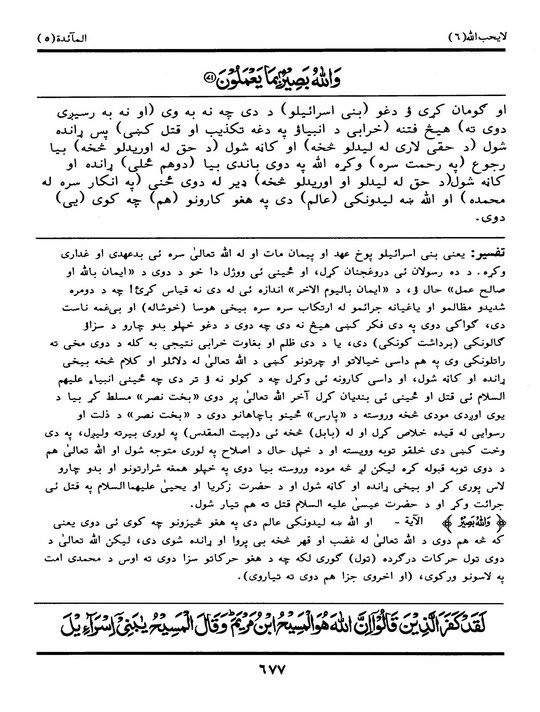 لايحب الله(٦) المآئدة(٥)
وَاللهُ بَصِيْرٌۢ بِمَا يَعْمَلُوْنَ ﴿٧١﴾
او ګومان کړی ؤ دغو (بنی اسرائيلو) د دی چه نه به وی (او نه به رسيږی
دوی ته) هيڅ فتنه (خرابی د انبياؤ په دغه تکذيب او قتل کښی) پس ړانده
شول (د حقی لاری له ليدلو څخه) او کاڼه شول (د حق له اوريدلو څخه) بيا
رجوع (په رحمت سره) وکړه الله په دوی باندی بيا (دوهم ځلی) ړانده او
کاڼه شول(د حق له ليدلو او اوريدلو څخه) ډير له دوی ځنی (په انکار سره له
محمده) او الله ښه ليدونکی (عالم) دی په هغو کارونو (هم) چه کوی (يی)
دوی.
تفسير: يعنی بنی اسرائيلو پوخ عهد او پيمان مات او له الله تعالیٰ سره ئی بدعهدی او غداری
وکړه. د ده رسولان ئی دروغجنان کړل، او ځينی ئی ووژل دا خو د دوی د «ايمان بالله او
صالح عمل» حال ؤ، د «ايمان باليوم الاخر» اندازه ئی له دی نه قياس کړئ! چه د دومره
شديدو مظالمو او ياغيانه جرائمو له ارتکاب سره سره بيخی هوسا (خوشاله) او بی‌غمه ناست
دی، ګواکی دوی په دی فکر کښی هيڅ نه دی چه دوی د دغو خپلو بدو چارو د سزاؤ
ګالونکی (برداشت کونکی) دی، يا د دی ظلم او بغاوت خرابی نتيجی به کله د دوی مخی ته
راتلونکی وی په هم داسی خيالاتو او چرتونو کښی د الله تعالیٰ له دلائلو او کلام څخه بيخی
ړانده او کاڼه شول، او داسی کارونه ئی وکړل چه د کولو نه ؤ تر دی چه ځينی انبياء عليهم
السلام ئی قتل او ځينی ئی بنديان کړل آخر الله تعالیٰ پر دوی «بخت نصر» مسلط کړ بيا د
يوی اوږدی مودی څخه وروسته د «پارس» ځينو باچاهانو دوی د «بخت نصر» د ذلت او
رسوايی له قيده خلاص کړل او له (بابل) څخه ئی د(بيت المقدس) په لوری بيرته وليږل، په دی
وخت کښی دی خلقو توبه وويسته او د خپل حال د اصلاح په لوری متوجه شول او الله تعالیٰ هم
د دوی توبه قبوله کړه ليکن لږ څه موده وروسته بيا دوی په خپلو همغه شرارتونو او بدو چارو
لاس پوری کړ او بيخی ړانده او کاڼه شول او د حضرت زکريا او يحيیٰ عليهماالسلام په قتل ئی
جرائت وکړ او د حضرت عيسیٰ عليه السلام قتل ته هم تيار شول.
﴿وَاللهُ بَصِيْرٌ﴾ الآية - او الله ښه ليدونکی عالم دی په هغو څيزونو چه کوی ئی دوی يعنی
که څه هم دوی د الله تعالیٰ له غضب او قهر څخه بی پروا او ړانده شوی دی، ليکن الله تعالیٰ د
دوی ټول حرکات درګرده (ټول) ګوری لکه چه د هغو حرکاتو سزا دوی ته اوس د محمدی امت
په لاسونو ورکوی، (او اخروی جزا هم دوی ته تياروی).
لَقَدْ كَفَرَ الَّذِيْنَ قَالُوْٓا اِنَّ اللهَ هُوَ الْمَسِيْحُ ابْنُ مَرْيَمَ ؕ وَقَالَ الْمَسِيْحُ يٰبَنِيْٓ اِسْرَآءِيْلَ
٦٧٧